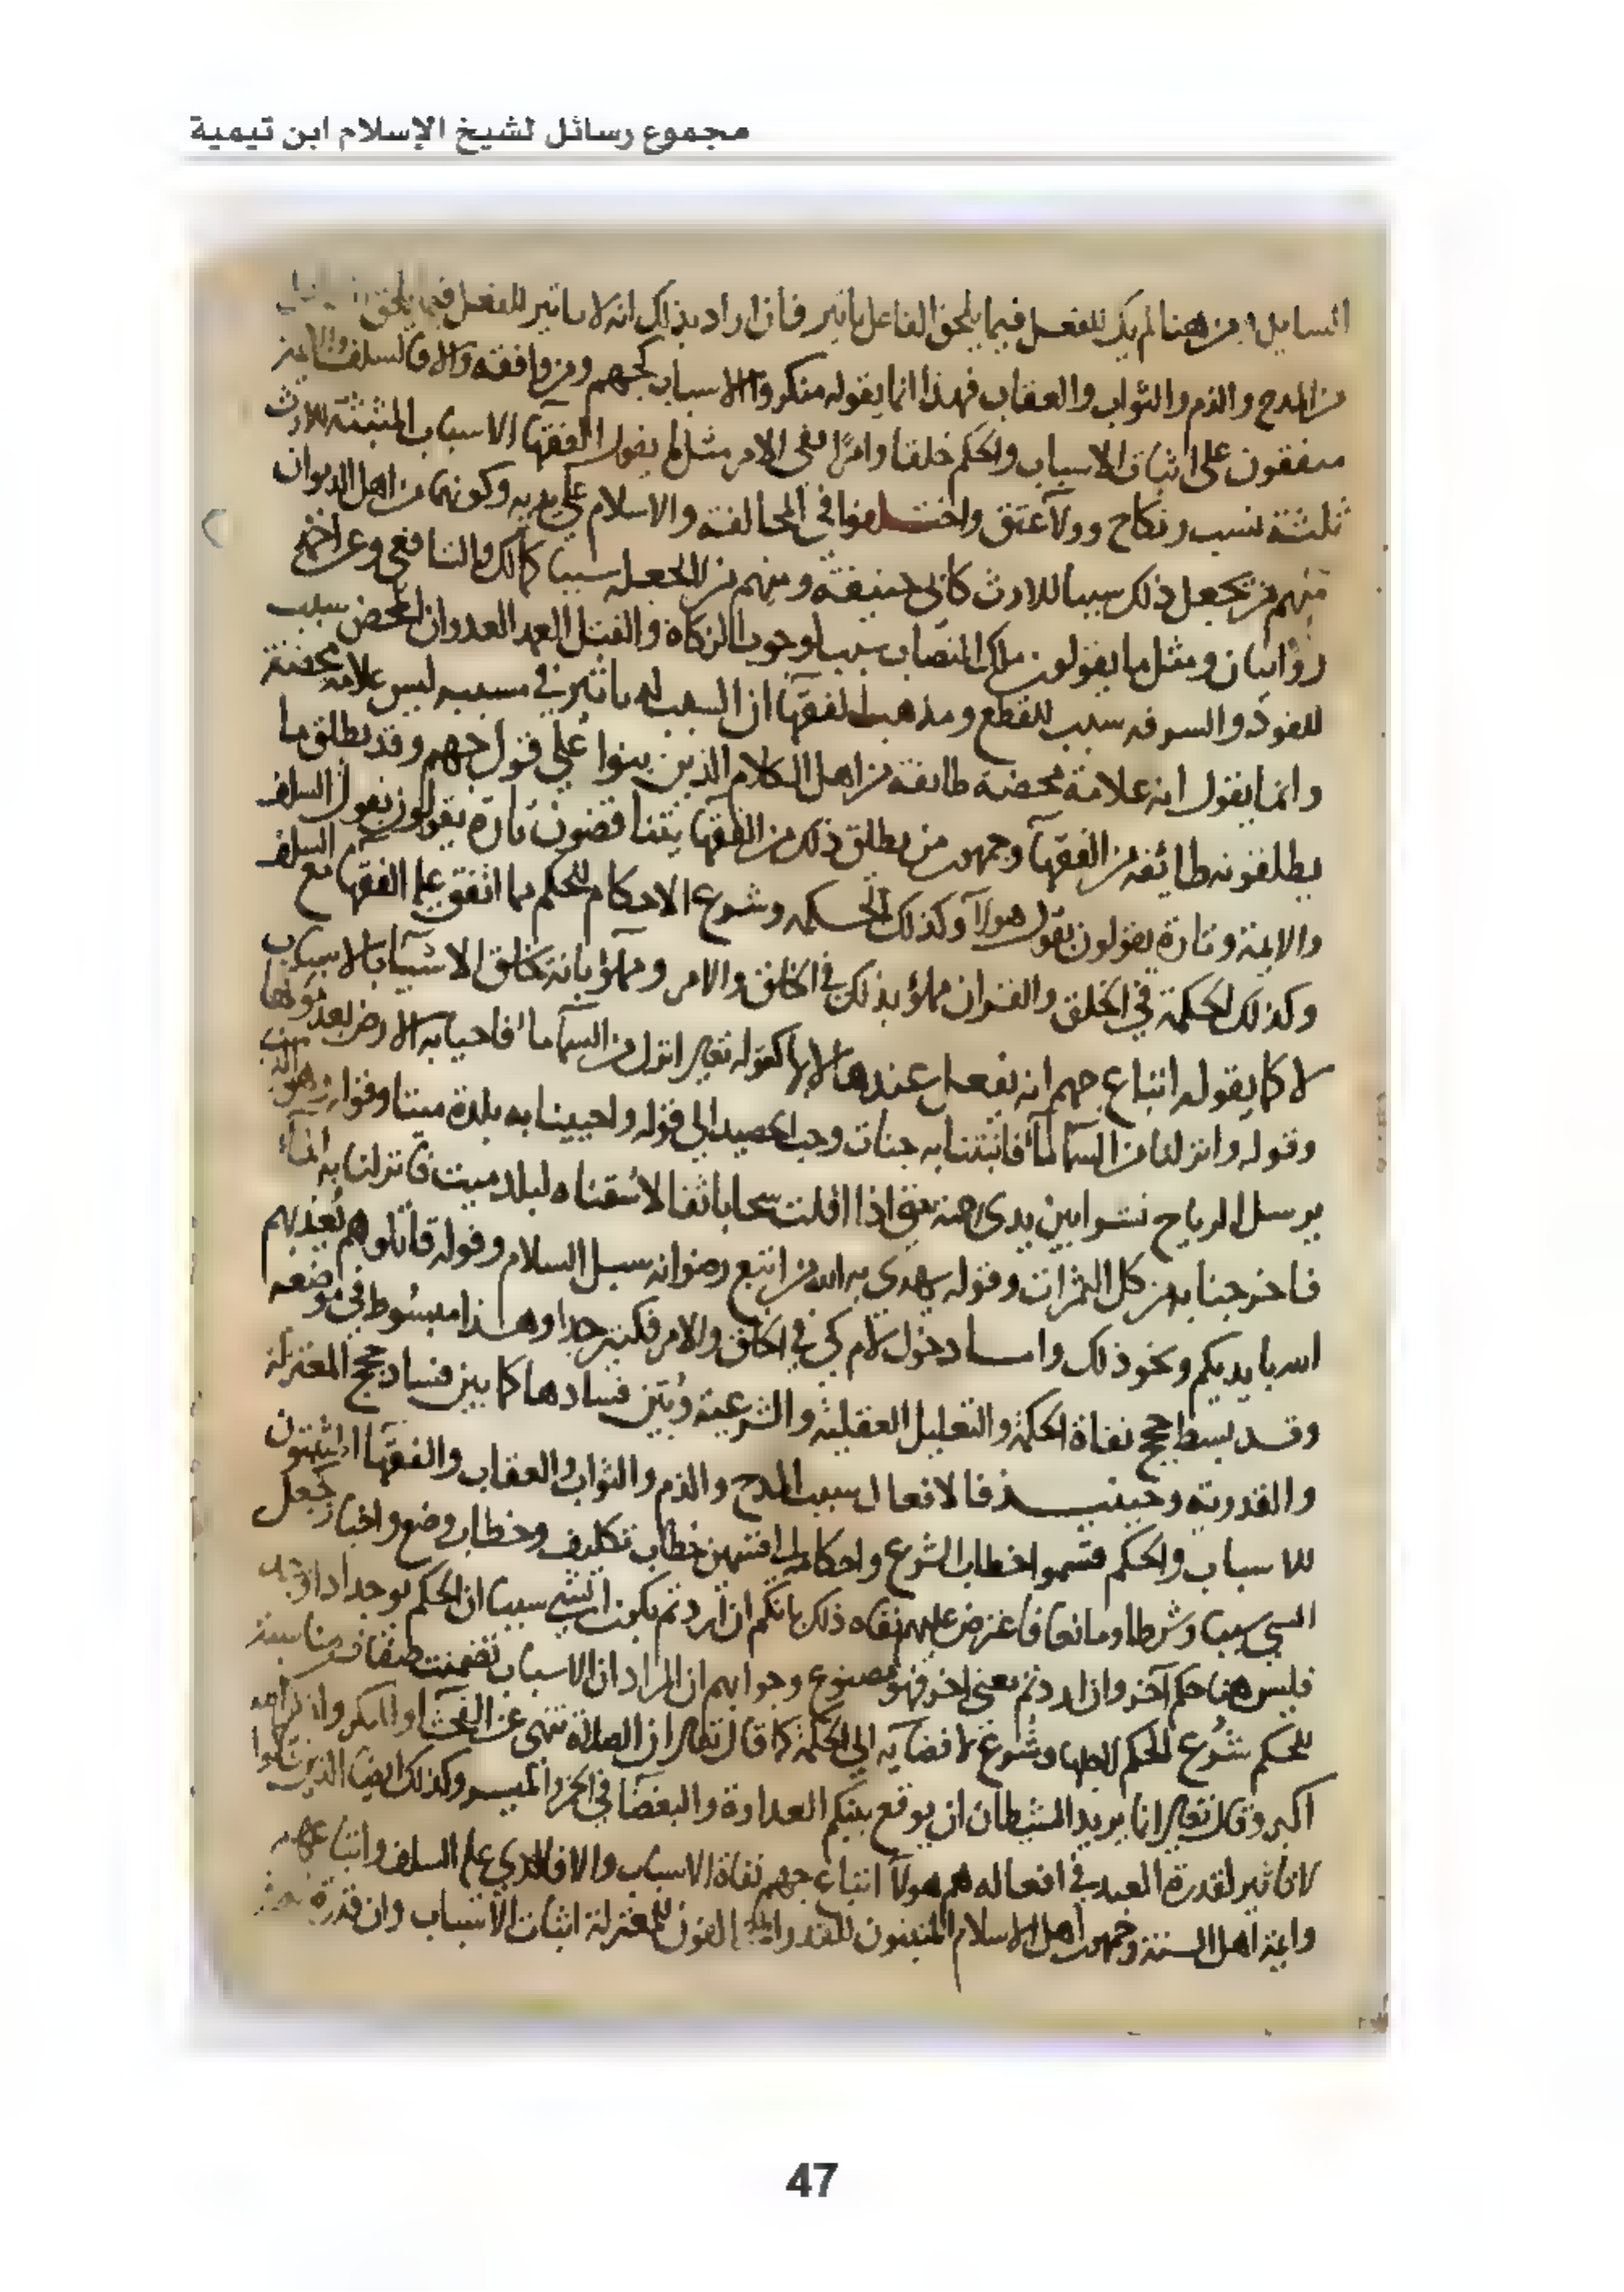 مجموع رسائل لشيخ الإسلام ابن تيمية
السايل ومن هنا لم يك للفعل فيما يلحق الفاعل تاثير فان اراد بذلك انه لا تاثير للفعل فيما يلحق
من المدح والذم والثواب والعقاب فهذا انما يقوله منكروا الاسباب كجهم ومن وافقه والا فالسلف والايمة
متفقون على اثبات الاسباب والحكم خلقا وامرا ففي الامر مثل ما يقول الفقها الاسباب المثبتة للارث
ثلثة نسب ونكاح وولا عتق واختلفوا في المحالفة والاسلام على يديه وكونهما من اهل الديوان
منهم من يجعل ذلك سببا للارث كابي حنيفة ومنهم من لا يجعله سببا كمالك والشافعي وعن احمد
روايتان ومثل ما يقولون ملك النصاب سبب لوجوب الزكاة والقتل العمد العدوان المحض سبب
للقود والسرقه سبب للقطع ومذهب الفقها ان السبب له تاثير في مسببه ليس علامة محضة
وانما يقول انه علامة محضة طايفة من اهل الكلام الذين بنوا على قول جهم وقد يطلق ما
يطلقونه طايفة من الفقها وجمهور من يطلق ذلك من الفقها يتناقضون تارة يقولون بقول السلف
والايمة وتارة يقولون بقول هولا وكذلك الحكمه وشرع الاحكام للحكم مما اتفق عليه الفقها مع السلف
وكذلك الحكمة في الخلق والقران مملؤ بذلك في الخلق والامر ومملؤ بانه يخلق الاشيا بالاسباب
لا كما يقوله اتباع جهم انه يفعل عندها لا بها كقوله تعالى انزل من السما ما فاحيا به الارض بعد موتها
وقوله وانزلنا من السما ما فانبتنا به جنات وحب الحصيد الى قوله واحيينا به بلدة ميتا وقوله وهو الذي
يرسل الرياح نشرا بين يدي رحمته حتى اذا اقلت سحابا ثقالا سقناه لبلد ميت فانزلنا به الماء
فاخرجنا به من كل الثمرات وقوله يهدي به الله من اتبع رضوانه سبل السلام وقوله قاتلوهم يعذبهم
الله بايديكم ونحو ذلك واما دخول لام كي في الخلق والامر فكثير جدا وهذا مبسوط في موضعه
وقد بسط حجج نفاة الحكمة والتعليل العقلية والشرعية وبين فسادها كما بين فساد حجج المعتزلة
والقدرية وحينئذ فالافعال سبب للمدح والذم والثواب والعقاب والفقها المثبتون
للاسباب والحكم قسموا خطاب الشرع واحكامه الى قسمين خطاب تكليف وخطاب وضع واخبار كجعل
الشي سببا وشرطا ومانعا فاعترض عليهم نفاه ذلك بانكم ان اردتم بكون الشي سببا ان الحكم يوجد اذا وجد
فليس هنا حكم آخر وان اردتم معنى اخر فهو ممنوع وجوابهم ان المراد ان الاسباب تضمنت صفات مناسبة
للحكم شرع الحكم لاجلها وشرع لافضايه الى الحكمة كما قال تعالى ان الصلاة تنهى عن الفحشا والمنكر ولذكر الله
اكبر وقال تعالى انما يريد الشيطان ان يوقع بينكم العداوة والبغضا في الخمر والميسر وكذلك ايضا الذين قالوا
لا تاثير لقدرة العبد في افعاله هم هولا اتباع جهم نفاة الاسباب والا فالذي عليه السلف واتباعهم
وايمة اهل السنة وجمهور اهل الاسلام المثبتون للقدر المخالفون للمعتزلة اثبات الاسباب وان قدرة
47